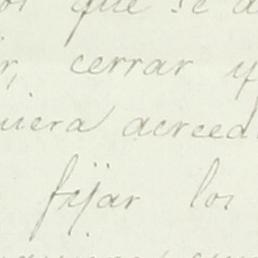 que se a
r, cerrar y
uiera acreed
fijar los